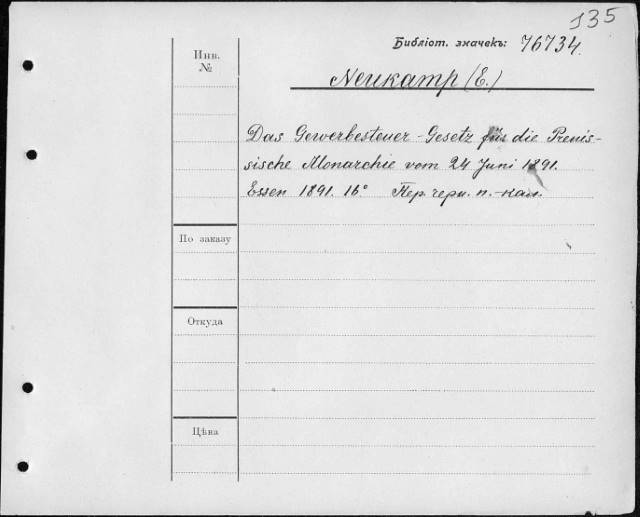 135
Библіот. значекъ: 76734.
Инв.
№
Neukamp (E.)
Das Gewerbesteuer-Gesetz für die Preuis-
sische Monarchie vom 24 Juni 1891.
Essen 1891. 16° Пер. черн. п.-кал.
По заказу
Откуда
Цѣна